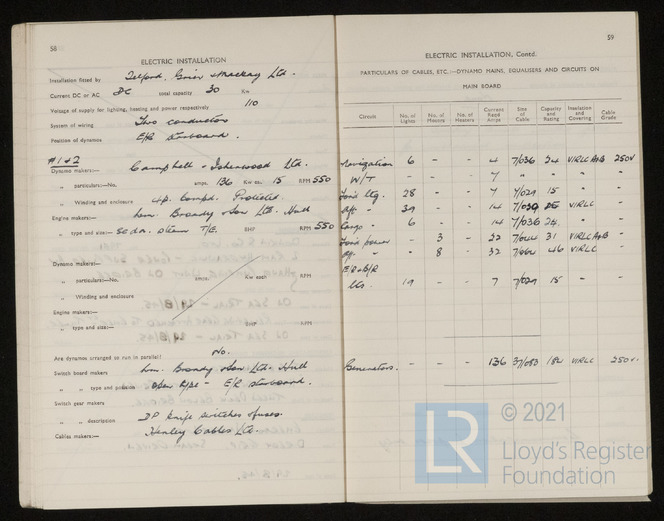 58
ELECTRIC INSTALLATION
Installation fitted by Telford, Grier & Mackay Ltd.
Current DC or AC DC total capacity 30 Kw
Voltage of supply for lighting, heating and power respectively 110
System of wiring Two conductors
Position of dynamos E/R starboard.
#1 & 2
Dynamo makers:— Campbell & Isherwood Ltd.
„ particulars:—No. amps. 136 Kw ea. 15 RPM 550
„ Winding and enclosure 4p. Compd. Protected
Engine makers:— Wm. Broady & Son Ltd. Hull
„ type and size:— steam T/E. BHP RPM 550
Dynamo makers:—
„ particulars:—No. amps. Kw each RPM
„ Winding and enclosure
Engine makers:—
„ type and size:— BHP RPM
Are dynamos arranged to run in parallel? No.
Switch board makers Wm. Broady & Son Ltd. Hull
„ „ type and position Open type - E/R starboard.
Switch gear makers
„ „ description DP knife switches & fuses.
Cables makers:— Henley Cables Ltd.
59
ELECTRIC INSTALLATION, Contd.
PARTICULARS OF CABLES, ETC.—DYNAMO MAINS, EQUALISERS AND CIRCUITS ON
MAIN BOARD
Circuit No. of Lights No. of Motors No. of Heaters Current Read Amps Size of Cable Capacity and Rating Insulation and Covering Cable Grade
Navigation 6 - - 4 7/036 24 VIRLC A&B 250V
W/T - - - 7 " " " "
For'd ltg. 28 - - 7 7/029 15 " -
Aft " 39 - - 14 7/036 VIRLC "
Cargo " 6 - - 14 7/036 24 - "
For'd power - 3 - 22 7/044 31 VIRLC A&B -
Aft " - 8 - 32 7/064 46 VIRLC -
E/R & B/R
lts. 19 - - 7 7/029 15 - -
Generators. - - - 136 37/083 184 VIRLC 250V.
LR
© 2021
Lloyd's Register
Foundation